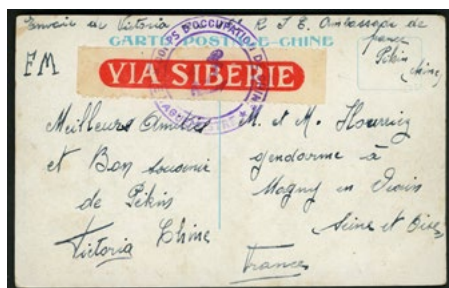 Envoie de Victoria R T E Ambassade de
france
Pékin
(Chine)
CARTE POSTALE-CHINE
CORPS D'OCCUPATION DE CHINE
FM
VIA SIBÉRIE
Meilleures Amitiés
et Bon Souvenir
de Pékin
Victoria Chine
M. et M.
gendarme à
Magny en Vexin
Seine et Oise
France